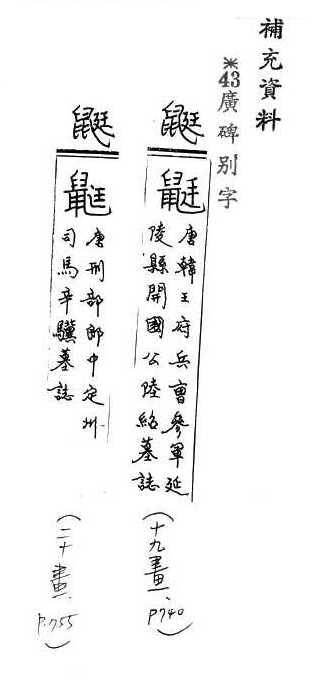 補充資料
※43廣碑別字
鼮
鼮
唐韓王府兵曹參軍延
陵縣開國公陸紹墓誌
(十九畫、P740)
鼮
唐刑部郎中定州
司馬辛驥墓誌
(二十畫、P.755)